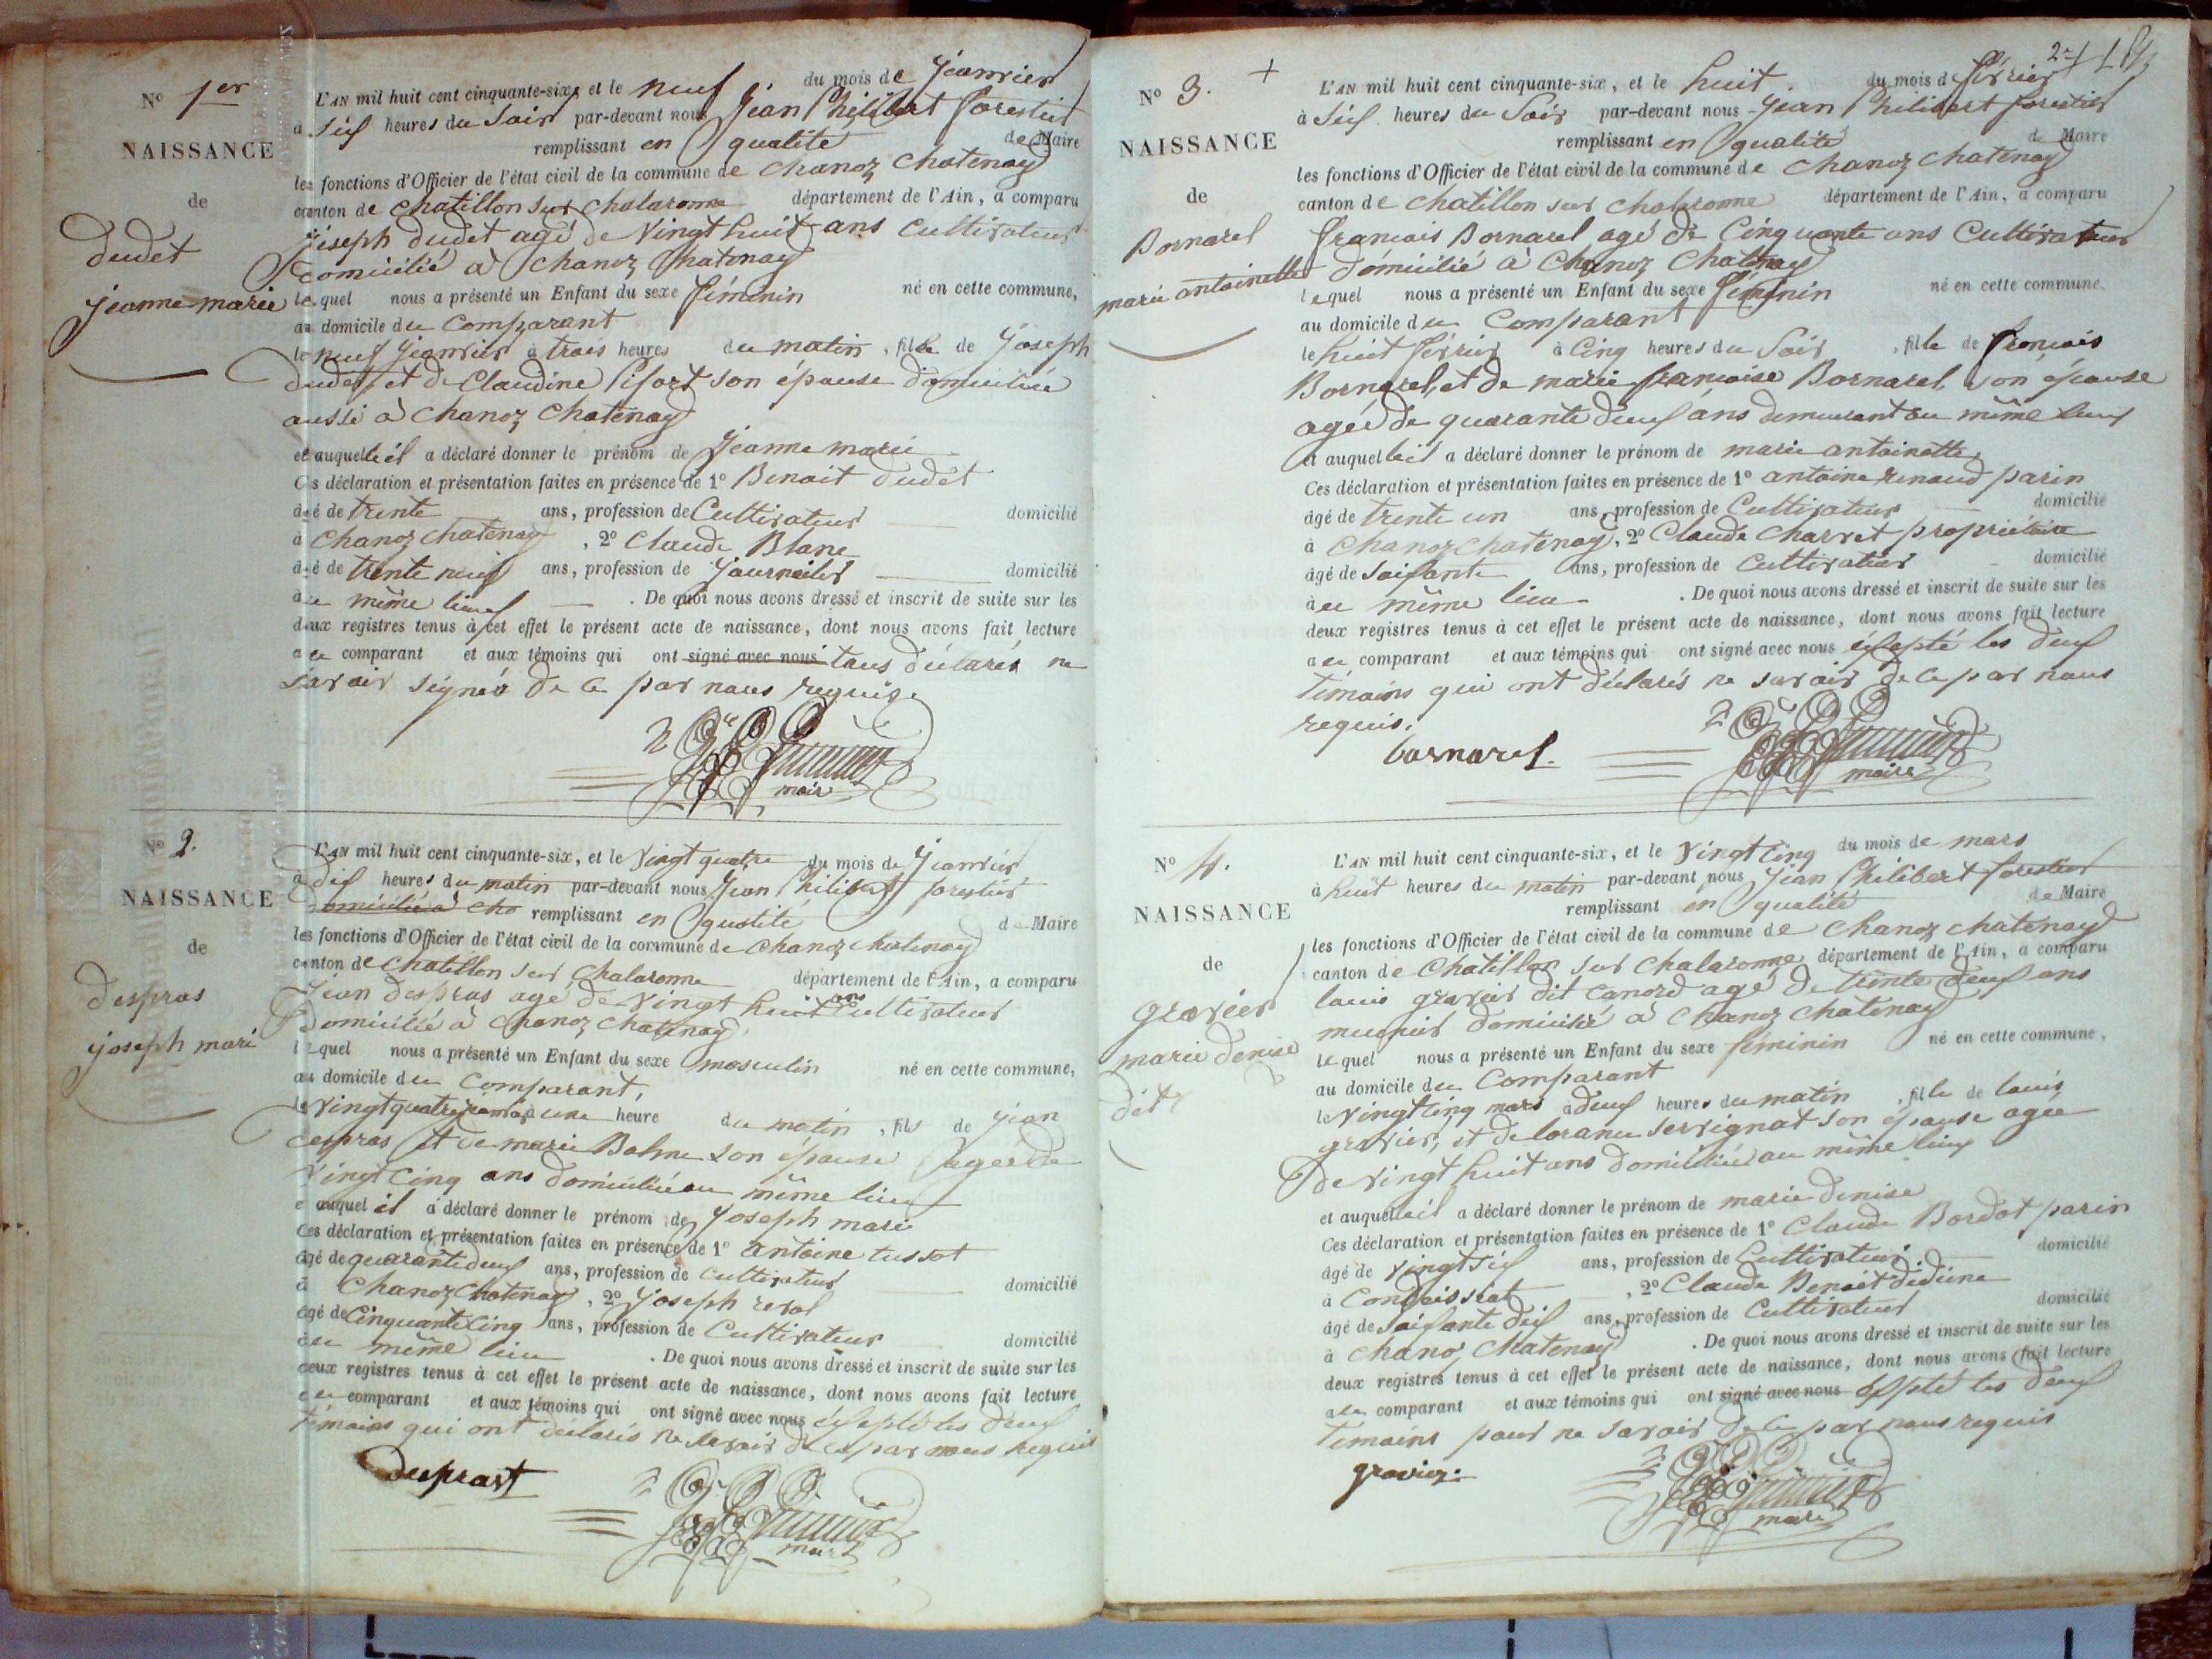 No 1er
NAISSANCE
de
dudet
jeanne marie
L'AN mil huit cent cinquante-six, et le neuf du mois de Janvier
à six heures du Soir par-devant nous Jean Philibert forestier
remplissant en qualité de Maire
les fonctions d'Officier de l'état civil de la commune de chanoz chatenay
canton de chatillon sur chalaronne département de l'Ain, a comparu
joseph dudet agé de vingt huit ans cultivateur
domicilié à chanoz chatenay
lequel nous a présenté un Enfant du sexe féminin né en cette commune,
au domicile du Comparant
le neuf janvier à trois heures du matin, fille de joseph
dudet et de Claudine son épouse domiciliée
aussi à chanoz chatenay
et auquelle il a déclaré donner le prénom de Jeanne marie
Ces déclaration et présentation faites en présence de 1° Benoit dudet
âgé de trente ans, profession de Cultivateur domicilié
à chanoz chatenay, 2° Claude Blanc
âgé de trente neuf ans, profession de journalier domicilié
au même lieux. De quoi nous avons dressé et inscrit de suite sur les
deux registres tenus à cet effet le présent acte de naissance, dont nous avons fait lecture
au comparant et aux témoins qui ont signé avec nous tous déclarés ne
savoir signés de ce par nous requise
maire
No 2.
NAISSANCE
de
despras
joseph mari
L'AN mil huit cent cinquante-six, et le vingt quatre du mois de Janvier
à dix heures du matin par-devant nous Jean Philibert forestier
domicilié à cha remplissant en qualité de Maire
les fonctions d'Officier de l'état civil de la commune de chanoz chatenay
canton de chatillon sur chalaronne département de l'Ain, a comparu
Jean despras agé de vingt huit ans cultivateur
domicilié à chanoz chatenay
lequel nous a présenté un Enfant du sexe masculin né en cette commune,
au domicile du Comparant,
le vingt quatre à une heure du matin, fils de jean
despras et de marie son épouse agée de
vingt cinq ans domiciliée au même lieux
et auquel il a déclaré donner le prénom de joseph mari
Ces déclaration et présentation faites en présence de 1° antoine tussot
âgé de quarante deux ans, profession de cultivateur domicilié
à chanoz chatenay, 2° joseph
âgé de Cinquante Cinq ans, profession de Cultivateur domicilié
au même lieu. De quoi nous avons dressé et inscrit de suite sur les
deux registres tenus à cet effet le présent acte de naissance, dont nous avons fait lecture
au comparant et aux témoins qui ont signé avec nous les deux
témoins qui ont déclarés ne savoir de ce par nous requis
desprast
maire
No 3. +
NAISSANCE
de
Bornarel
marie antoinette
L'AN mil huit cent cinquante-six, et le huit du mois d février
à six heures du Soir par-devant nous Jean Philibert forestier
remplissant en qualité de Maire
les fonctions d'Officier de l'état civil de la commune de chanoz chatenay
canton de chatillon sur chalaronne département de l'Ain, a comparu
francois Bornarel agé de Cinquante ans Cultivateur
domicilié à chanoz chatenay
lequel nous a présenté un Enfant du sexe féminin né en cette commune.
au domicile du Comparant
le huit février à Cinq heures du Soir, fille de francois
Bornarel, et de marie francoise Bornarel son épouse
agée de quarante deux ans demeurant au même lieux
et auquelle il a déclaré donner le prénom de marie antoinette
Ces déclaration et présentation faites en présence de 1° antoine renaud parin
âgé de trente un ans, profession de Cultivateur domicilié
à chanoz chatenay, 2° Claude Charvet propriétaire
âgé de soixante ans, profession de Cultivateur domicilié
au même lieu. De quoi nous avons dressé et inscrit de suite sur les
deux registres tenus à cet effet le présent acte de naissance, dont nous avons fait lecture
au comparant et aux témoins qui ont signé avec nous les deux
témoins qui ont déclarés ne savoir de ce par nous
requis.
bornarel
maire
No 4.
NAISSANCE
de
gravier
marie denise
dit
L'AN mil huit cent cinquante-six, et le vingt cinq du mois de mars
à huit heures du matin par-devant nous Jean Philibert forestier
remplissant en qualité de Maire
les fonctions d'Officier de l'état civil de la commune de chanoz chatenay
canton de Chatillon sur chalaronne département de l'Ain, a comparu
louis gravier dit canord agé de trente deux ans
meunier domicilié à chanoz chatenay
lequel nous a présenté un Enfant du sexe féminin né en cette commune,
au domicile du Comparant
le vingt cinq mars à deux heures du matin, fille de louis
gravier, et de servignat son épouse agée
de vingt huit ans domiciliée au même lieux
et auquelle il a déclaré donner le prénom de marie denise
Ces déclaration et présentation faites en présence de 1° Claude Bordot parin
âgé de vingt six ans, profession de Cultivateur domicilié
à Confaissiat, 2° Claude Benoit
âgé de soixante dix ans, profession de Cultivateur domicilié
à chanoz chatenay. De quoi nous avons dressé et inscrit de suite sur les
deux registres tenus à cet effet le présent acte de naissance, dont nous avons fait lecture
au comparant et aux témoins qui ont signé avec nous les deux
témoins pour ne savoir de ce par nous requis
gravier
maire